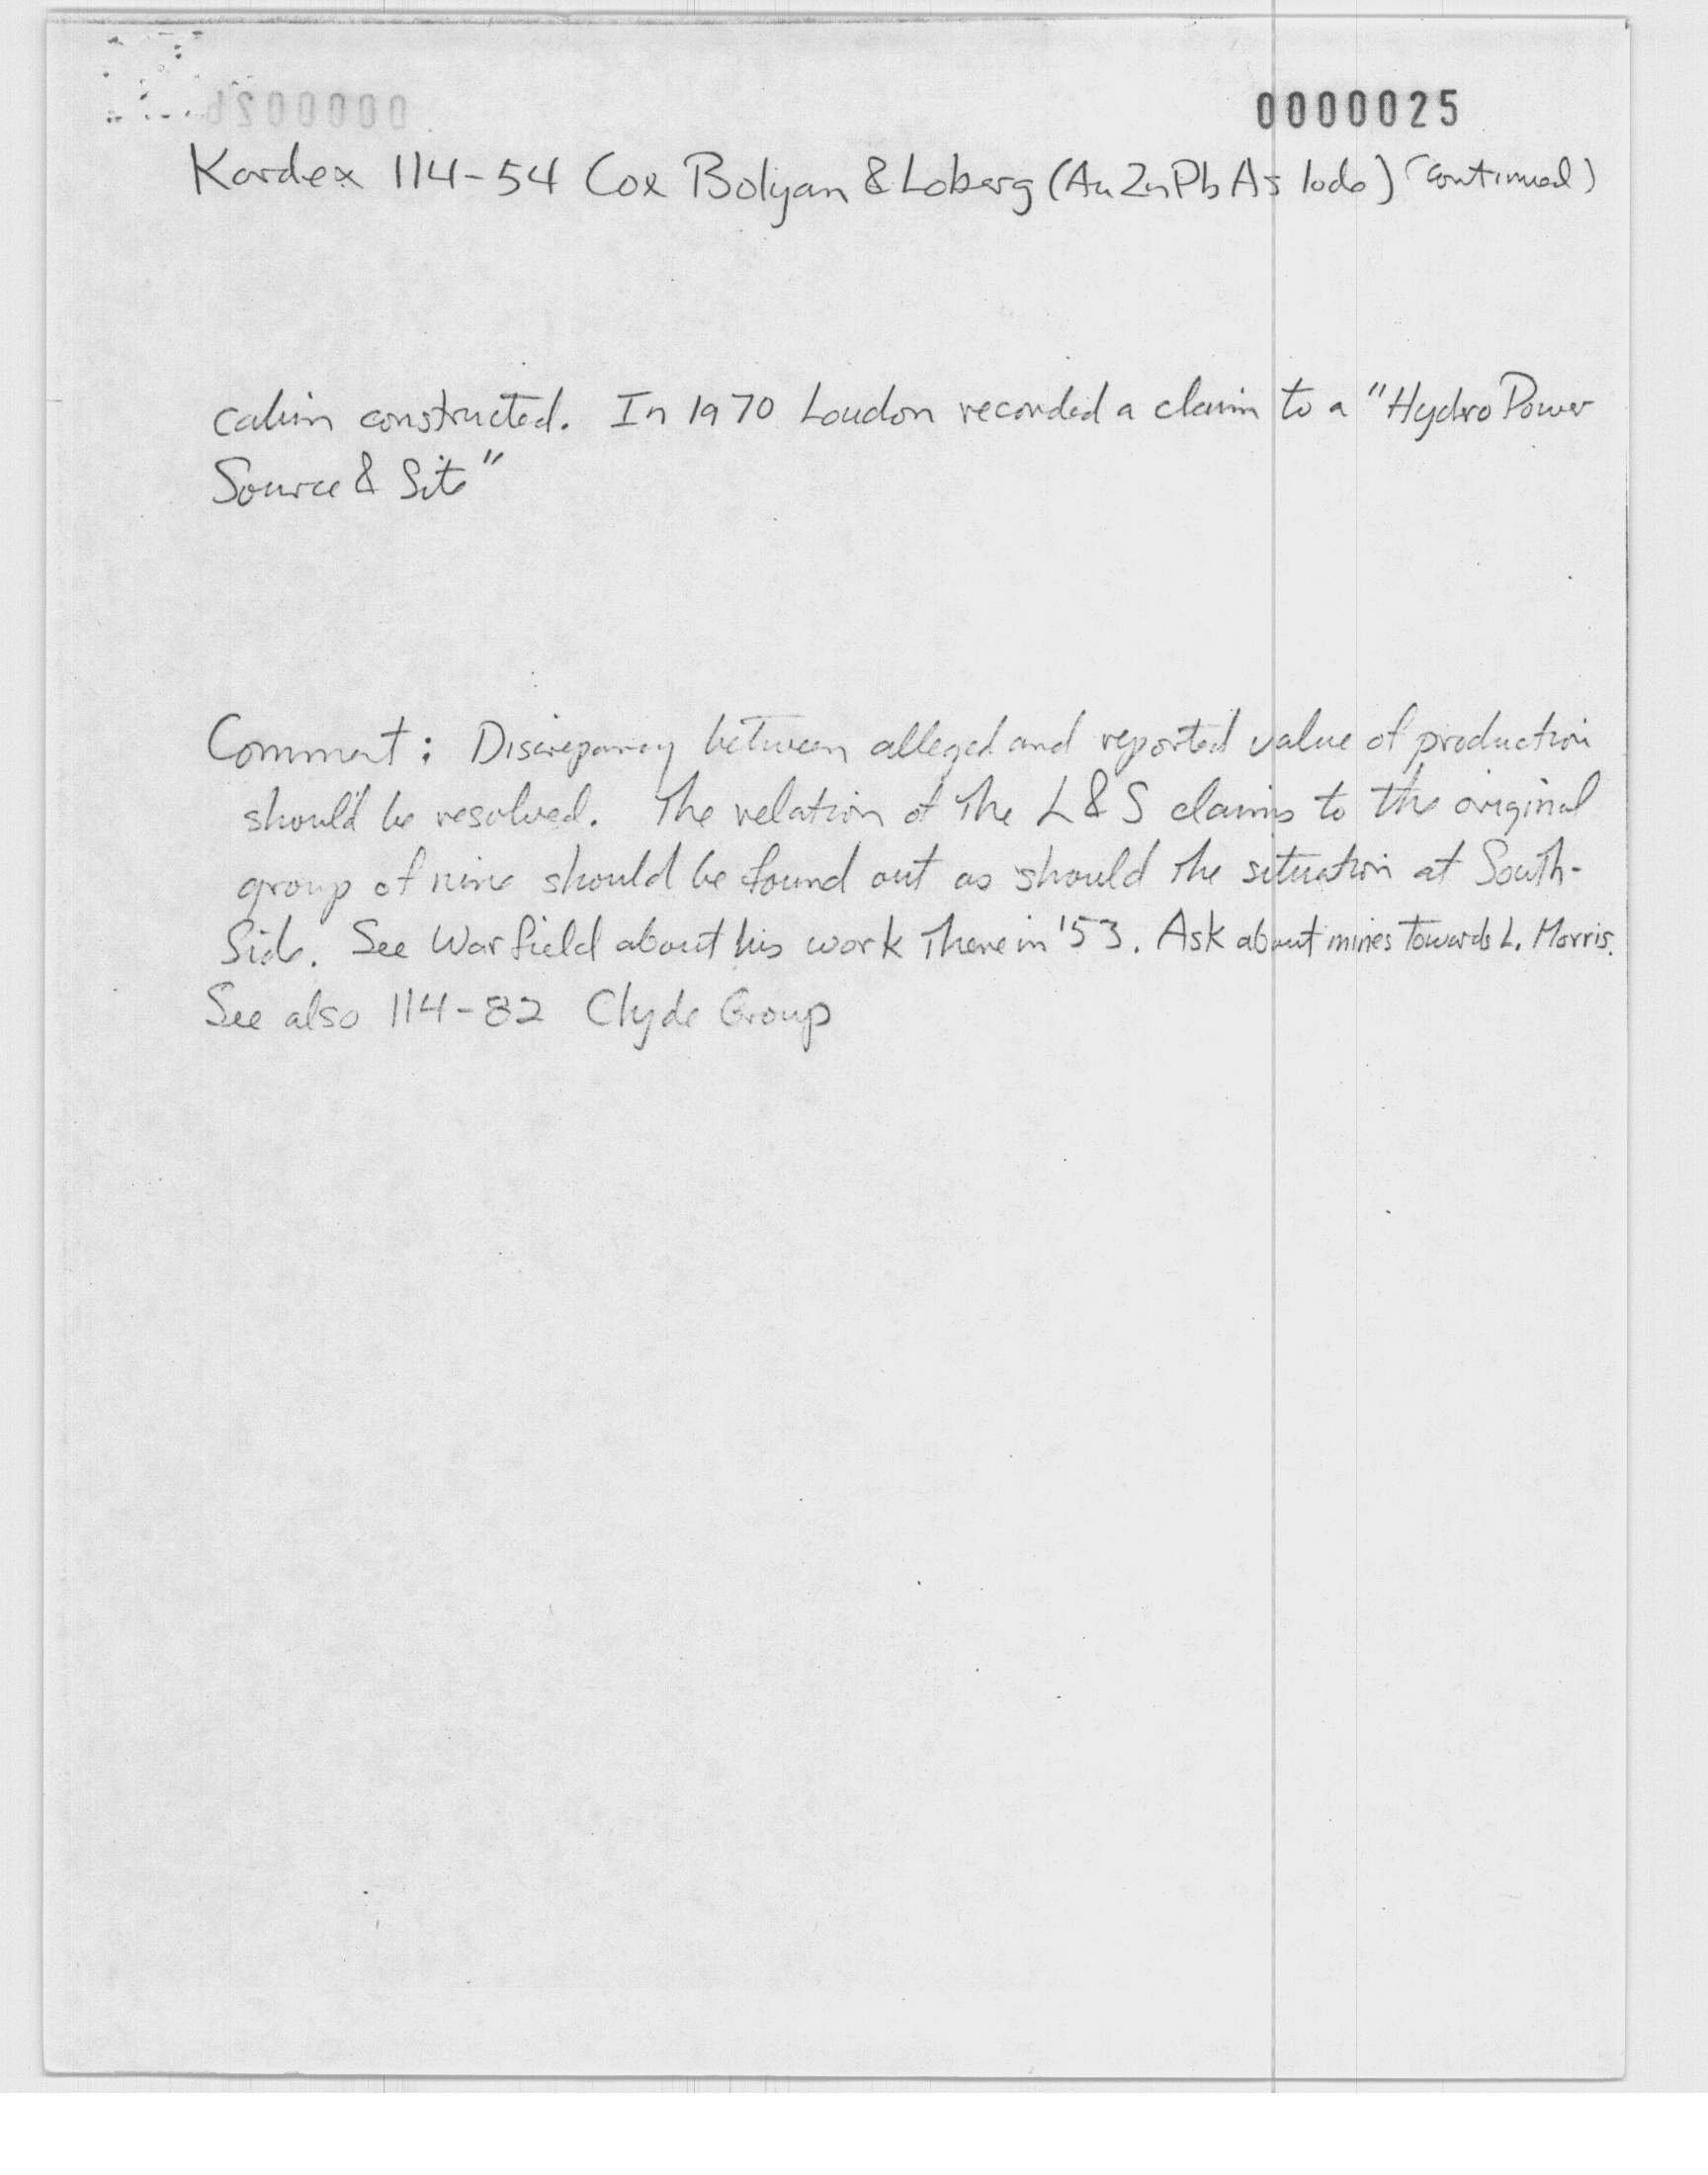 0000025
Kardex 114-54 Cox Bolyan & Loberg (Au Zn Pb As lode) (continued)
cabin constructed. In 1970 Loudon recorded a claim to a "Hydro Power
Source & Site"
Comment: Discrepancy between alleged and reported value of production
should be resolved. The relation of the L&S claims to the original
group of nine should be found out as should the situation at South-
Side. See Warfield about his work there in '53. Ask about mines towards L. Morris.
See also 114-82 Clyde Group